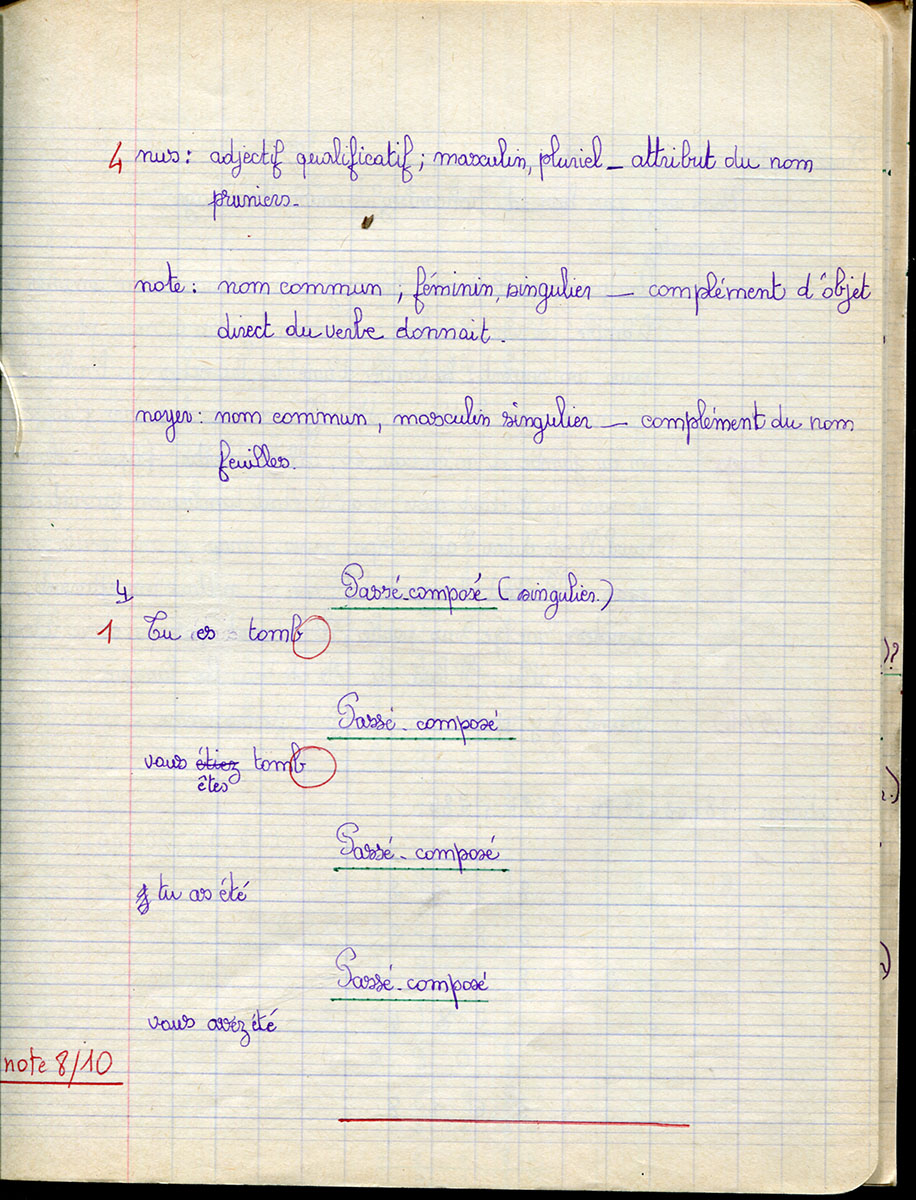 4 nus: adjectif qualificatif; masculin, pluriel _ attribut du nom
pruniers.
note: nom commun; féminin, singulier — complément d'objet
direct du verbe donnait.
noyer: nom commun, masculin singulier — complément du nom
feuilles.
4 Passé-composé (singulier.)
1 Tu es tomb
Passé-composé
vous étiez tomb
êtes
Passé-composé
tu as été
Passé-composé
vous avez été
note 8/10
)?